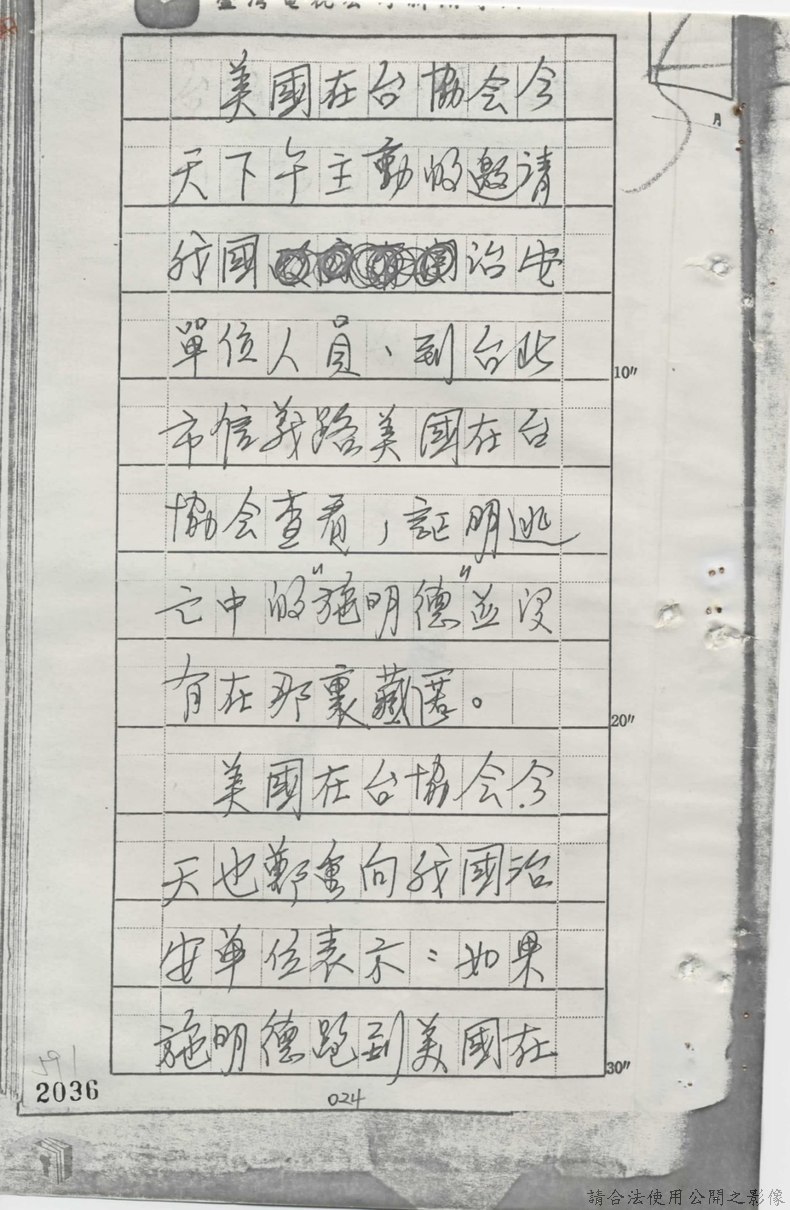 美國在台協会今
天下午主動的邀請
我國治安
單位人員、到台北
市信義路美國在台
協会查看,証明逃
亡中的"施明德"並沒
有在那裏藏匿。
美國在台協会今
天也鄭重向我國治
安单位表示:如果
施明德跑到美國在
10"
20"
30"
月
2036
024
請合法使用公開之影像